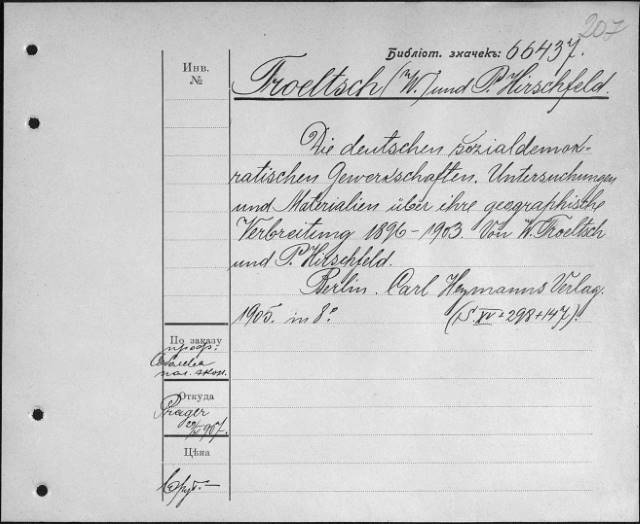 207
Библіот. значекъ: 66437.
Инв.
№
Troeltsch (W.) und P. Hirschfeld.
Die deutschen sozialdemok-
ratischen Gewerkschaften. Untersuchungen
und Materialien über ihre geographische
Verbreitung 1896-1903. Von W. Troeltsch
und P. Hirschfeld.
Berlin. Carl Heymanns Verlag.
1905. in 8º (S. XV+298+147).
По заказу
проф.
Соболева
пол. экон.
Откуда
Prager
907.
Цѣна